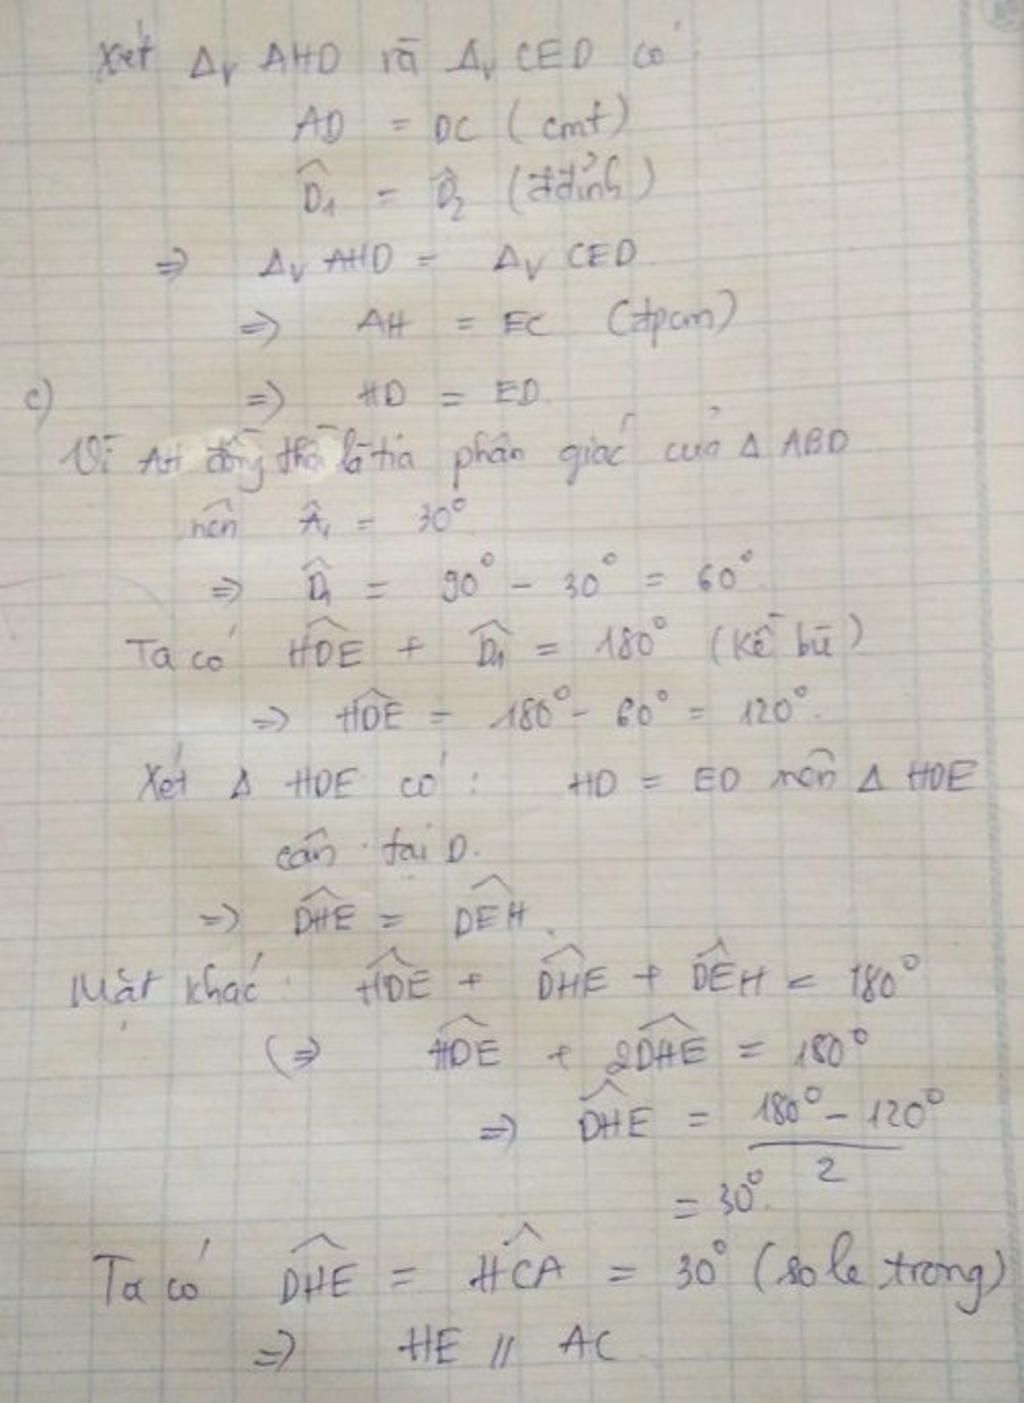 Xét Δv AHD và Δv CED có
AD = DC (cmt)
D̂1 = D̂2 (đđỉnh)
=> Δv AHD = Δv CED
=> AH = EC (đpcm)
c) => HD = ED
Vì AH đồng thời là tia phân giác của Δ ABD
nên Â1 = 30°
=> D̂1 = 90° - 30° = 60°
Ta có HD̂E + D̂1 = 180° (Kề bù)
=> HD̂E = 180° - 60° = 120°.
Xét Δ HDE có : HD = ED nên Δ HDE
cân tại D.
=> DĤE = DÊH.
Mặt khác : HD̂E + DĤE + DÊH = 180°
(=> HD̂E + 2DĤE = 180°
=> DĤE = (180° - 120°)/2
= 30°.
Ta có DĤE = HĈA = 30° (so le trong)
=> HE // AC